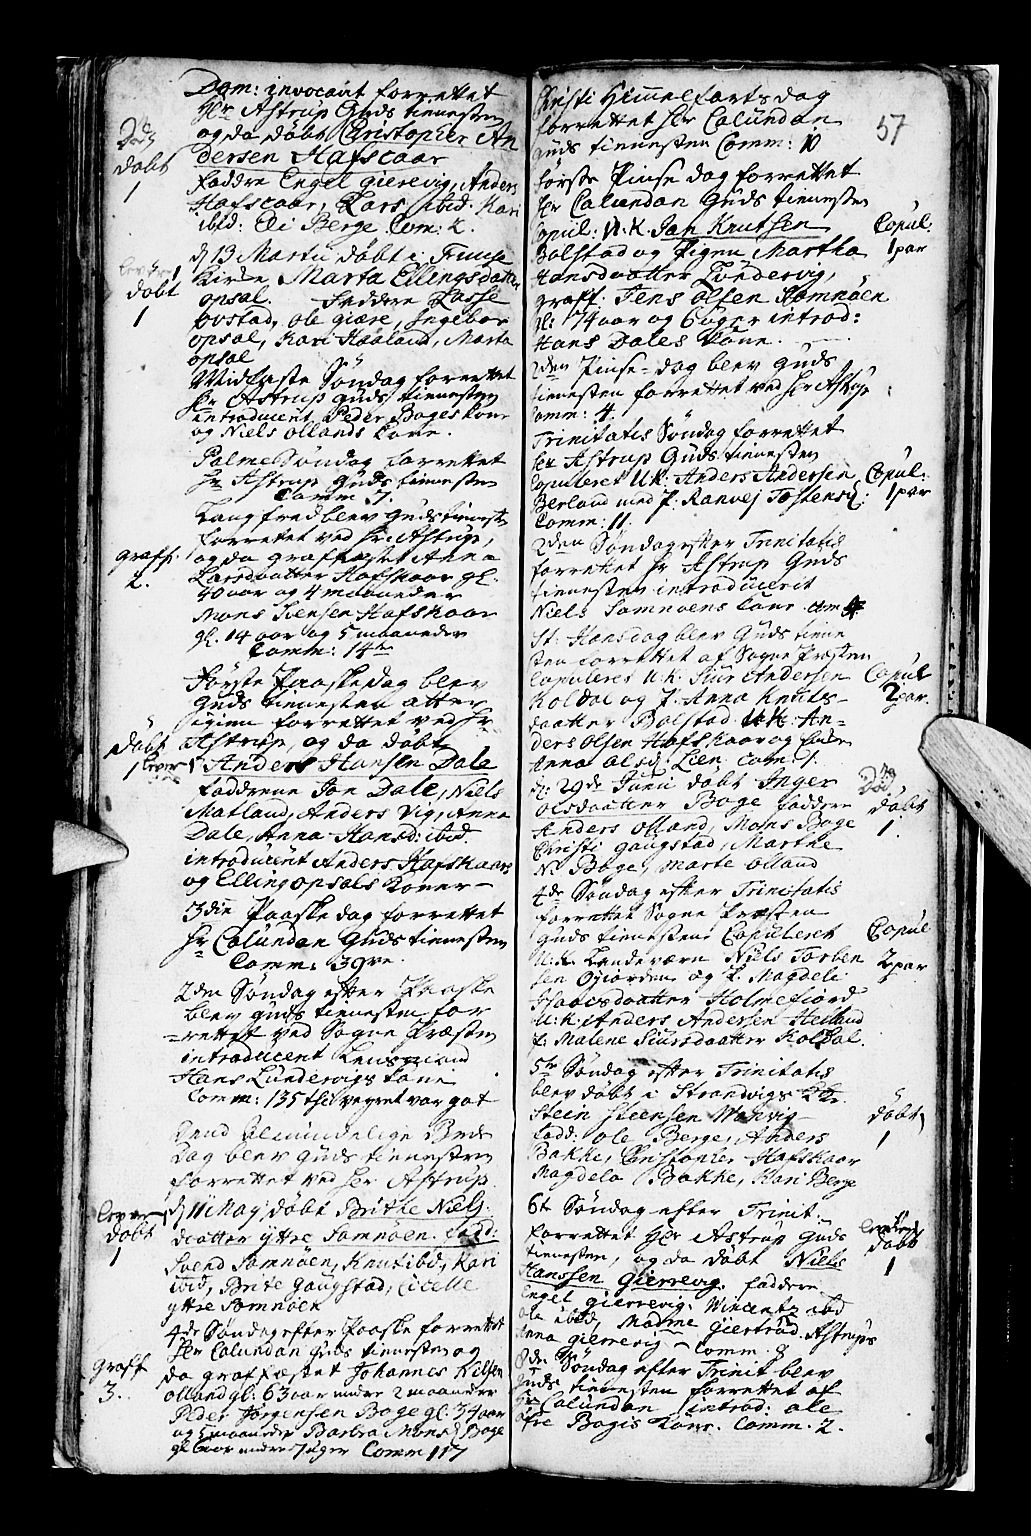 Dom: invocavit forrettet
Hr Astrup Guds tienesten
og da døbt Christopher An
dersen Hafscaar
døbt
1
faddre Engel gierevig, Anders
Hafscaar, Lars ibid: Kari
ibid: Eli Berge Com: 2.
d 13 Martii døbt i Fuuse
Kirke Marta Ellingsdatter
døbt
1
opsal. Faddere Lasse
ovstad, ole giære, Ingebor
opsal, Kari Haaland, Marta
opsal
Midfaste Søndag forrettet
Hr Astrup Guds tienesten
introducerit Peder Boges kone
og Niels ollands kone.
PalmeSøndag forrettet
Hr Astrup Guds tienesten
Comm 7.
Langfred blev Guds tienest
forrettet ved Hr Astrup,
graff.
2.
og da graffæstet Anna
Larsdaatter Hafskaar gl.
40 aar og 4 maaneder
Mons Svensen Hafskaar
gl. 14 aar og 5 maaneder
Comm: 14
Første Paaskedag blev
Guds tienesten atter
igien forrettet ved Hr
Astrup, og da døbt
døbt
1 lever
Anders Hansen Dale
fadderne Jon Dale, Niels
Matland, Anders Vig, Anna
Dale, Anna Hansd: ibid.
introducerit Anders Hafskaars
og Elling opsals koner
3die Paaskedag forrettet
Hr Calundan Guds tienesten
Comm: 39
2den Søndag efter Paaske
blev guds tienesten for
=rettet ved Sogne Præsten
introducerit Lensmand
Hans Lundervigs kone
Comm: 135 thi vegret var got
dend almindelige Beds
dag blev Guds tienesten
forrettet ved Hr Astrup.
døbt
1
d 11 Maij døbt Brithe Niels
daatter yttre Samnøen. fadd:
Svend Samnøen, Knut ibid, Kari
ibid, Brite Gaugstad, Cicelle
yttre Samnøen
4de Søndag efter Paaske forrettet
Hr Calundan Guds tienesten og
graff
3.
da graffæstet Johannes Nilssen
olland gl: 63 aar undre 2 maaneder
Peder Jørgensen Boge gl: 34 aar
og 5 maaneder Barbra Monsd Boge
gl 6 aar undre 7 uger Comm 117
57
Christi Himmelfarts dag
forrettet Hr Calundan
Guds tienesten Comm: 10
første Pinse dag forrettet
Hr Calundan Guds tienesten
Copul: U. K. Jan Knutsen
Copul:
1 par
Bolstad og Pigen Martha
Hansdaatter Lundervig,
graff. Jens olsen Samnøen
gl: 74 aar og 6 uger introd:
Hans Dales kone.
2den Pinse-dag blev Guds
tienesten forrettet ved Hr Astrup
Comm: 4.
Trinitatis Søndag forrettet
Hr Astrup Guds tienesten
Copuleret U.K. Anders Andersen
Copul:
1 par
Berland med P. Ranvej Tostensd:
Comm: 11.
2den Søndag efter Trinitatis
forrettet Hr Astrup Guds
tienesten introducerit
Niels Samnøens kone Com 4
St: Hansdag blev Guds tiene
sten forrettet af Sogne Præsten
Copuleret U.K. Siur Andersen
Copul
2 par.
Koldal og P. Anna Knuts-
daatter Bolstad U.K. An=
ders olsen Hafskaar og
Anna olsd Lien Com 1.
d: 29de Junii døbt Inger
olsdaatter Boge faddere
døbt
1.
Anders olland, Mons Boge
Christi gaugstad, Marthe
N. Boge, Marte olland
4de Søndag efter Trinitatis
forrettet Sogne Præsten
Guds tienesten Copuleret
Copul
2 par
U.K. Niels Torben
sen Øgiorden og P. Magdeli
Isaacsdaatter Holmefiord
U:K: Anders Andersen Heiland
P: Malene Siursdaatter Koldal.
5te Søndag efter Trinitatis
blev døbt i Strandvigs
Steen Steensen
døbt
1
fadd: ole Berge, Anders
Bakke, Christopher Hafskaar
Magdela Bakke, Kari Berge
6te Søndag efter Trinit:
forrettet Hr Astrup Guds
tienesten, og da døbt Niels
døbt
1
Hanssen gierrevig. faddere
Engel gierrevig, Wincentz ibd
ole ibid, Madme Giertrud Astrups
Anna gierrevig - Comm. 8
8de Søndag efter Trinit blev
Guds tienesten forrettet af
Hr Calundan introd: ole
øfre Bogis kone. Comm. 2.